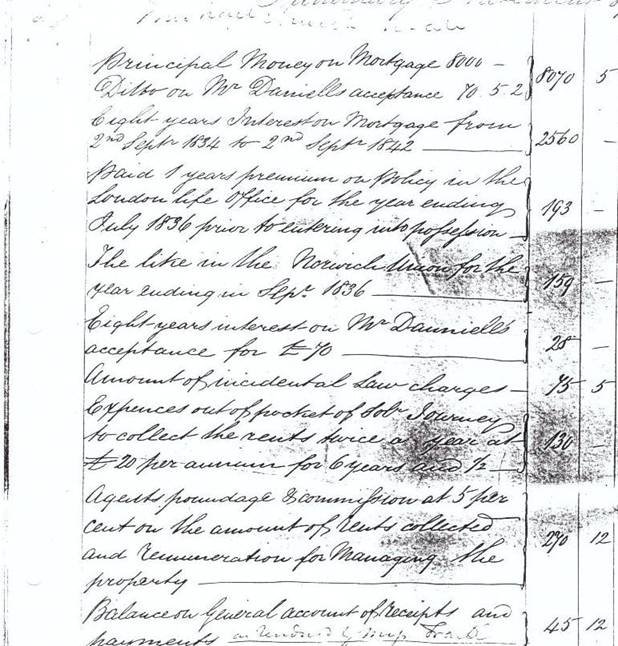 Summary Statement
Principal Money on Mortgage 8000 –
Ditto on Mr Daniells acceptance 70 5 2 } 8070 5
Eight years Interest on Mortgage from
2nd Septr 1834 to 2nd Septr 1842 — 2560 –
Paid 1 years premium on Policy in the
London life Office for the year ending
July 1836 prior to entering into possession – 193 –
The like in the Norwich Union for the
year ending in Sepr. 1836 — 159 –
Eight years interest on Mr Danniells
acceptance for £70 — 28 –
Amount of incidental Law charges – 75 5
Expences out of pocket of Solr. Journey
to collect the rents twice a year at
£20 per annum for 6 years and ½ – 130 –
Agents poundage & commission at 5 per
cent on the amount of rents collected
and remuneration for Managing the
property — 290 12
Balance on General account of receipts and
payments 45 12